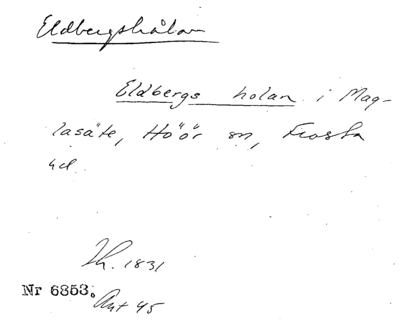 Eldbergshålan
Eldbergs holan i Mag-
lasäte, Höör sn, Frosta
hd
Lh. 1831
Nr 6353.
Ant 45